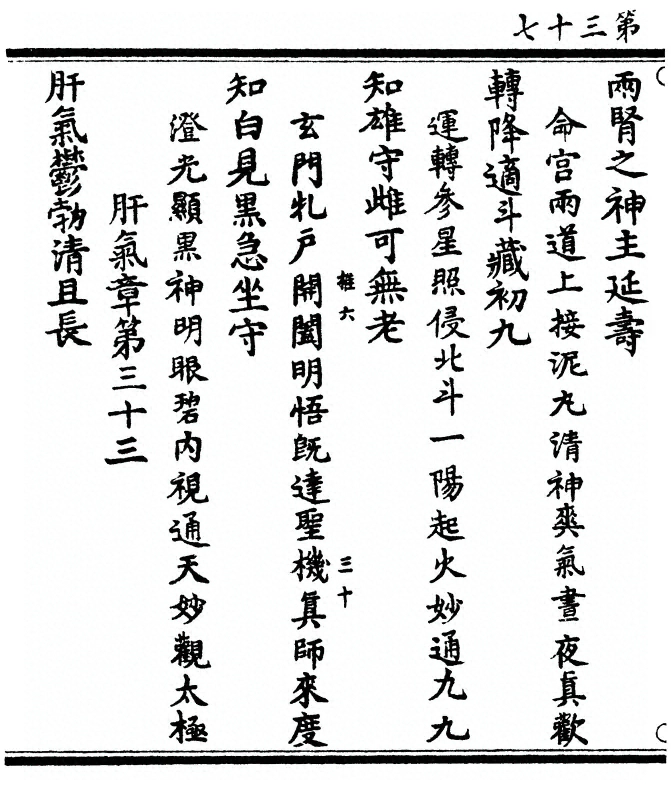 第三十七
兩腎之神主延壽
命宮兩道上接泥丸清神爽氣晝夜真歡
轉降適斗藏初九
運轉參星照侵北斗一陽起火妙通九九
知雄守雌可無老
推六
三十
玄門牝戶開闔明悟既達聖機真師來度
知白見黑急坐守
澄光顯黑神明眼碧內視通天妙觀太極
肝氣章第三十三
肝氣鬱勃清且長